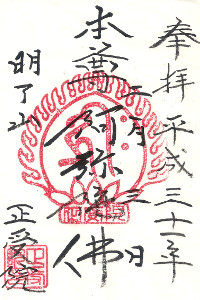 奉拝 平成三十一年
二月三日
本尊 阿弥陀佛
明了山 正受院